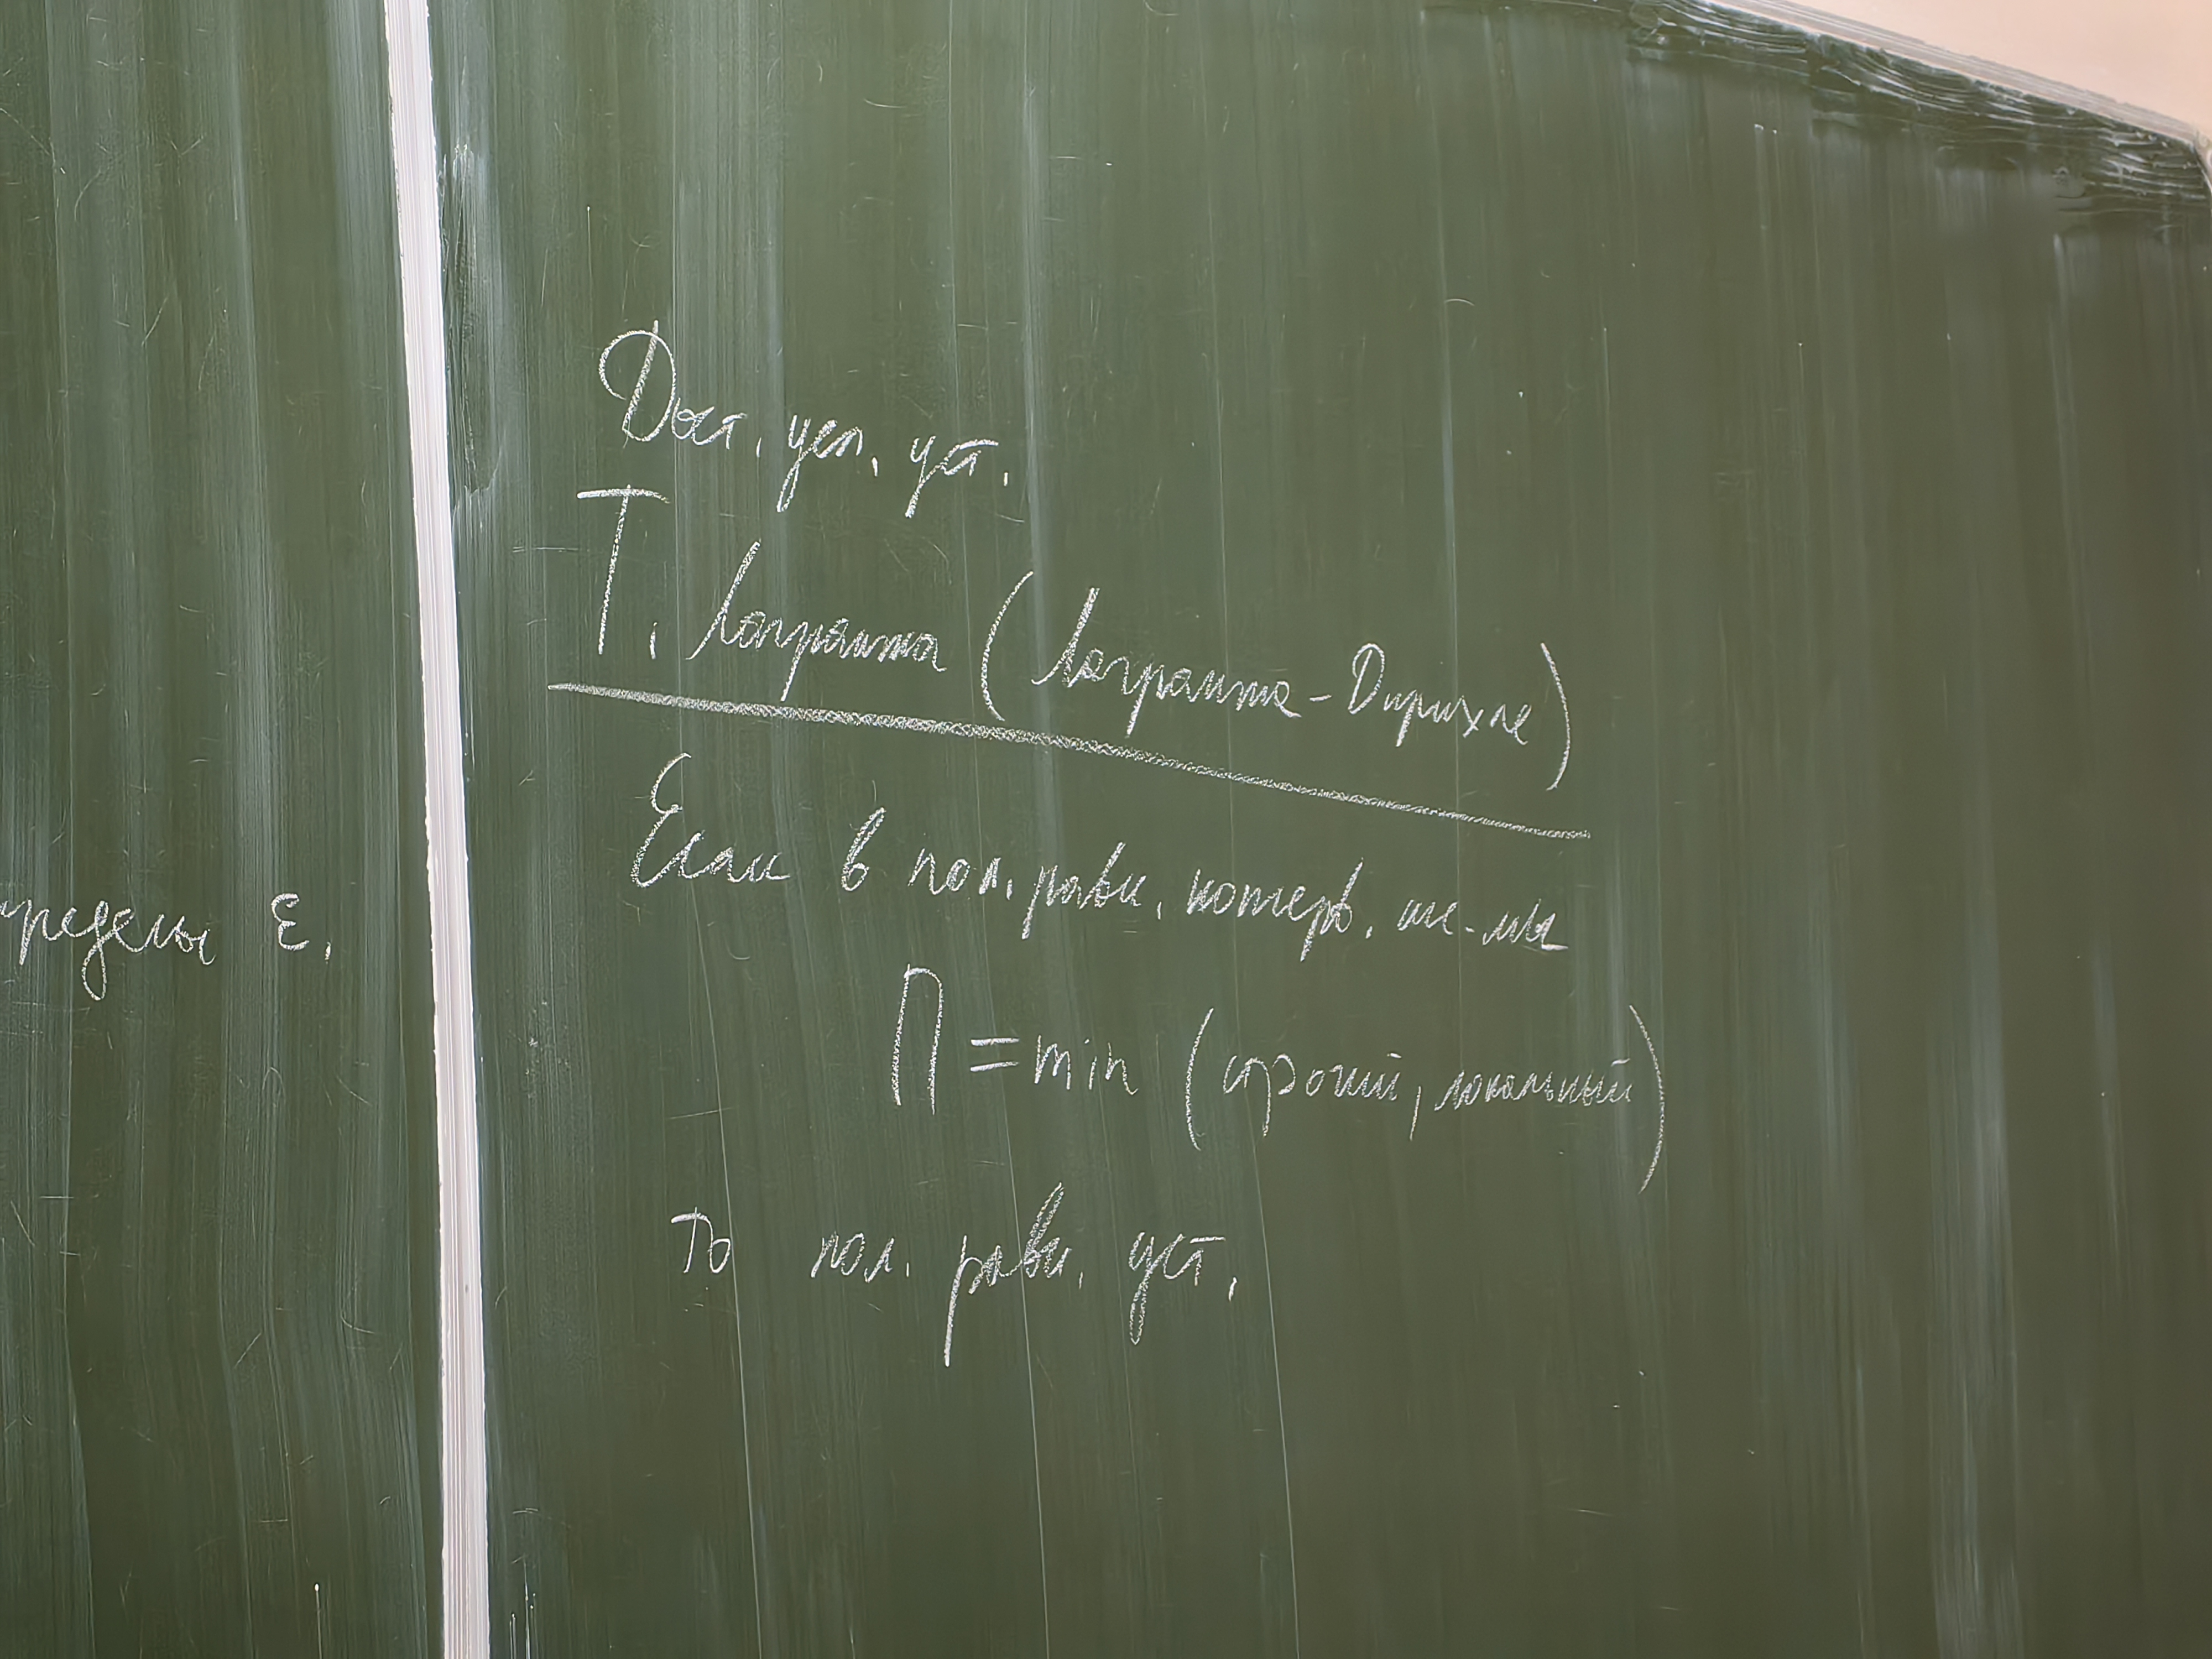 пределы ε.
Дост. усл. уст.
Т. Лагранжа (Лагранжа-Дирихле)
Если в пол. равн. консерв. си-мы
П = min (строгий, локальный)
то пол. равн. уст.